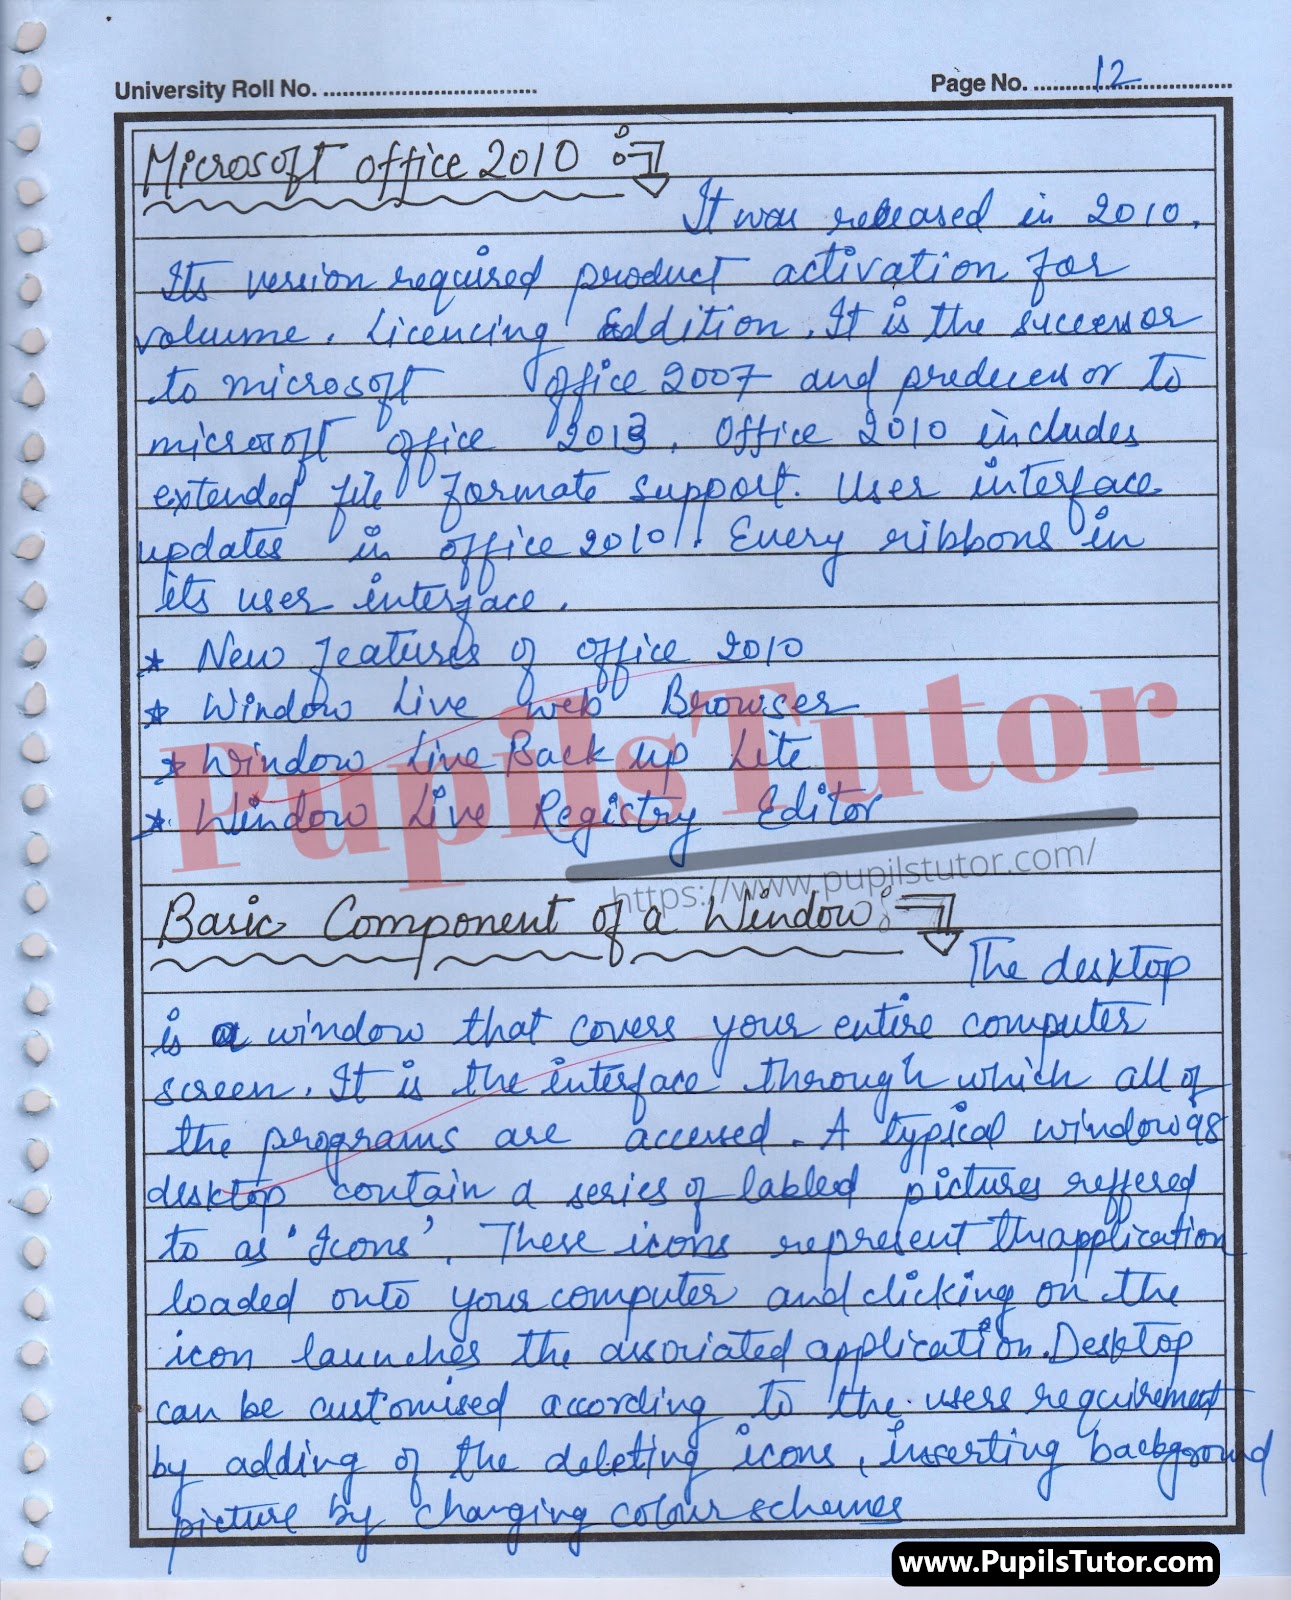 University Roll No. ................................. Page No. ......12......
Microsoft office 2010 :
It was released in 2010.
Its version required product activation for
volume. Licencing Eddition. It is the successor
to microsoft office 2007 and predecessor to
microsoft office 2013. Office 2010 includes
extended file formate support. User interface
updates in office 2010. Every ribbons in
its user interface.
* New features of office 2010
* Window Live web Browser
* Window Live Back up Lite
* Window Live Registry Editor
PupilsTutor
https://www.pupilstutor.com/
Basic Component of a Window:
The desktop
is a window that covers your entire computer
screen. It is the interface through which all of
the programs are accessed. A typical window 98
desktop contain a series of labled pictures reffered
to as 'Icons'. These icons represent the application
loaded onto your computer and clicking on the
icon launches the associated application. Desktop
can be customised according to the users requirement
by adding of the deleting icons, inserting background
picture by changing colour schemes
www.PupilsTutor.com